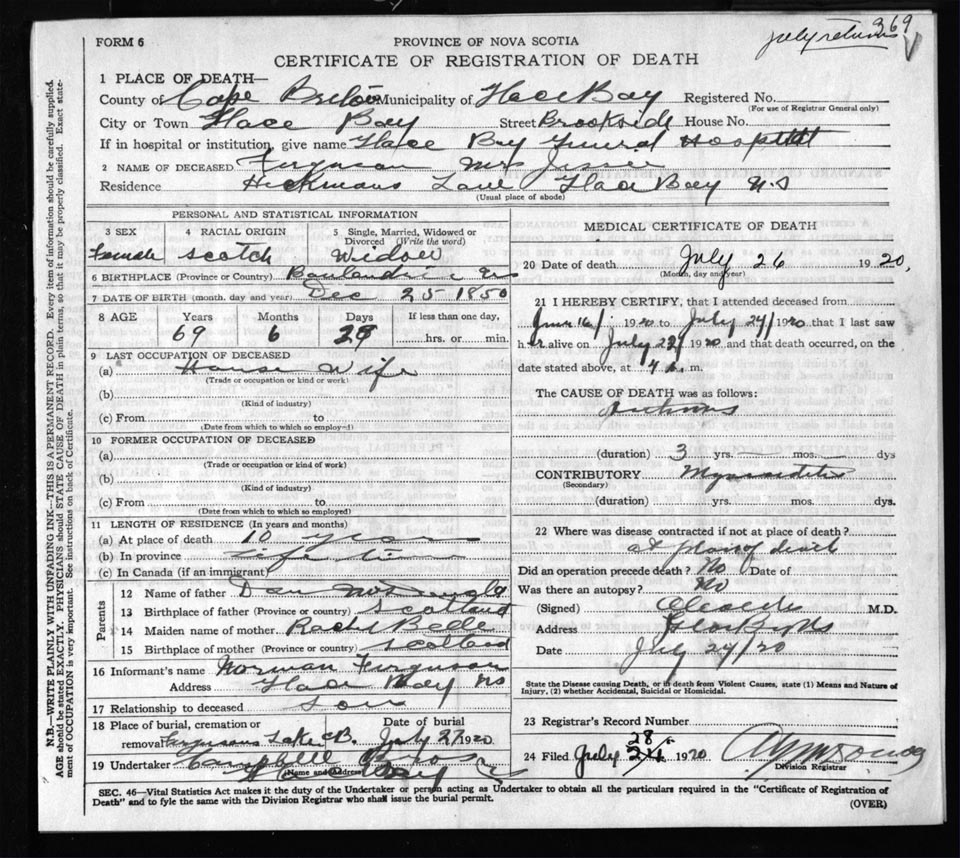 July returns 369
FORM 6
PROVINCE OF NOVA SCOTIA
CERTIFICATE OF REGISTRATION OF DEATH
1 PLACE OF DEATH—
County of Cape Breton Municipality of Glace Bay Registered No.
(For use of Registrar General only)
City or Town Glace Bay Street Brookside House No.
If in hospital or institution, give name Glace Bay General Hospital
2 NAME OF DECEASED Ferguson Mrs Jessie
Residence Hickmans Lane Glace Bay N.S
(Usual place of abode)
PERSONAL AND STATISTICAL INFORMATION
3 SEX 4 RACIAL ORIGIN 5 Single, Married, Widowed or Divorced (Write the word)
Female Scotch Widow
6 BIRTHPLACE (Province or Country)
7 DATE OF BIRTH (month, day and year) Dec 25 1850
8 AGE Years Months Days If less than one day,
69 6 28 hrs. or min.
9 LAST OCCUPATION OF DECEASED
(a) House Wife
(Trade or occupation or kind or work)
(b)
(Kind of industry)
(c) From to
(Date from which to which so employed)
10 FORMER OCCUPATION OF DECEASED
(a)
(Trade or occupation or kind of work)
(b)
(Kind of industry)
(c) From to
(Date from which to which so employed)
11 LENGTH OF RESIDENCE (In years and months)
(a) At place of death 10 years
(b) In province life time
(c) In Canada (if an immigrant)
Parents
12 Name of father Dan McDougla
13 Birthplace of father (Province or country) Scotland
14 Maiden name of mother Rachel Belle
15 Birthplace of mother (Province or country) Scotland
16 Informant's name Norman Ferguson
Address Glace Bay NS
17 Relationship to deceased Son
18 Place of burial, cremation or removal Fergusons Lake C.B. Date of burial July 27 1920
19 Undertaker Campbell
(Name and Address) Bay
MEDICAL CERTIFICATE OF DEATH
20 Date of death July 26 1920,
(Month, day and year)
21 I HEREBY CERTIFY, that I attended deceased from
June 16/ 1920 to July 24/ 1920 that I last saw
her alive on July 23/ 1920 and that death occurred, on the
date stated above, at m.
The CAUSE OF DEATH was as follows:
(duration) 3 yrs. — mos. — dys
CONTRIBUTORY Myocarditis
(Secondary)
(duration) yrs. mos. dys.
22 Where was disease contracted if not at place of death?
at place of death
Did an operation precede death? No Date of
Was there an autopsy? No
(Signed) M.D.
Address Glace Bay NS
Date July 24/20
State the Disease causing Death, or in death from Violent Causes, state (1) Means and Nature of
Injury, (2) whether Accidental, Suicidal or Homicidal.
23 Registrar's Record Number
28
24 Filed July 24 1920
Division Registrar
SEC. 46—Vital Statistics Act makes it the duty of the Undertaker or person acting as Undertaker to obtain all the particulars required in the "Certificate of Registration of
Death" and to fyle the same with the Division Registrar who shall issue the burial permit.
(OVER)
N.B.—WRITE PLAINLY WITH UNFADING INK—THIS IS A PERMANENT RECORD. Every item of information should be carefully supplied.
AGE should be stated EXACTLY. PHYSICIANS should STATE CAUSE OF DEATH in plain terms, so that it may be properly classified. Exact statement of OCCUPATION is very important. See instructions on back of Certificate.